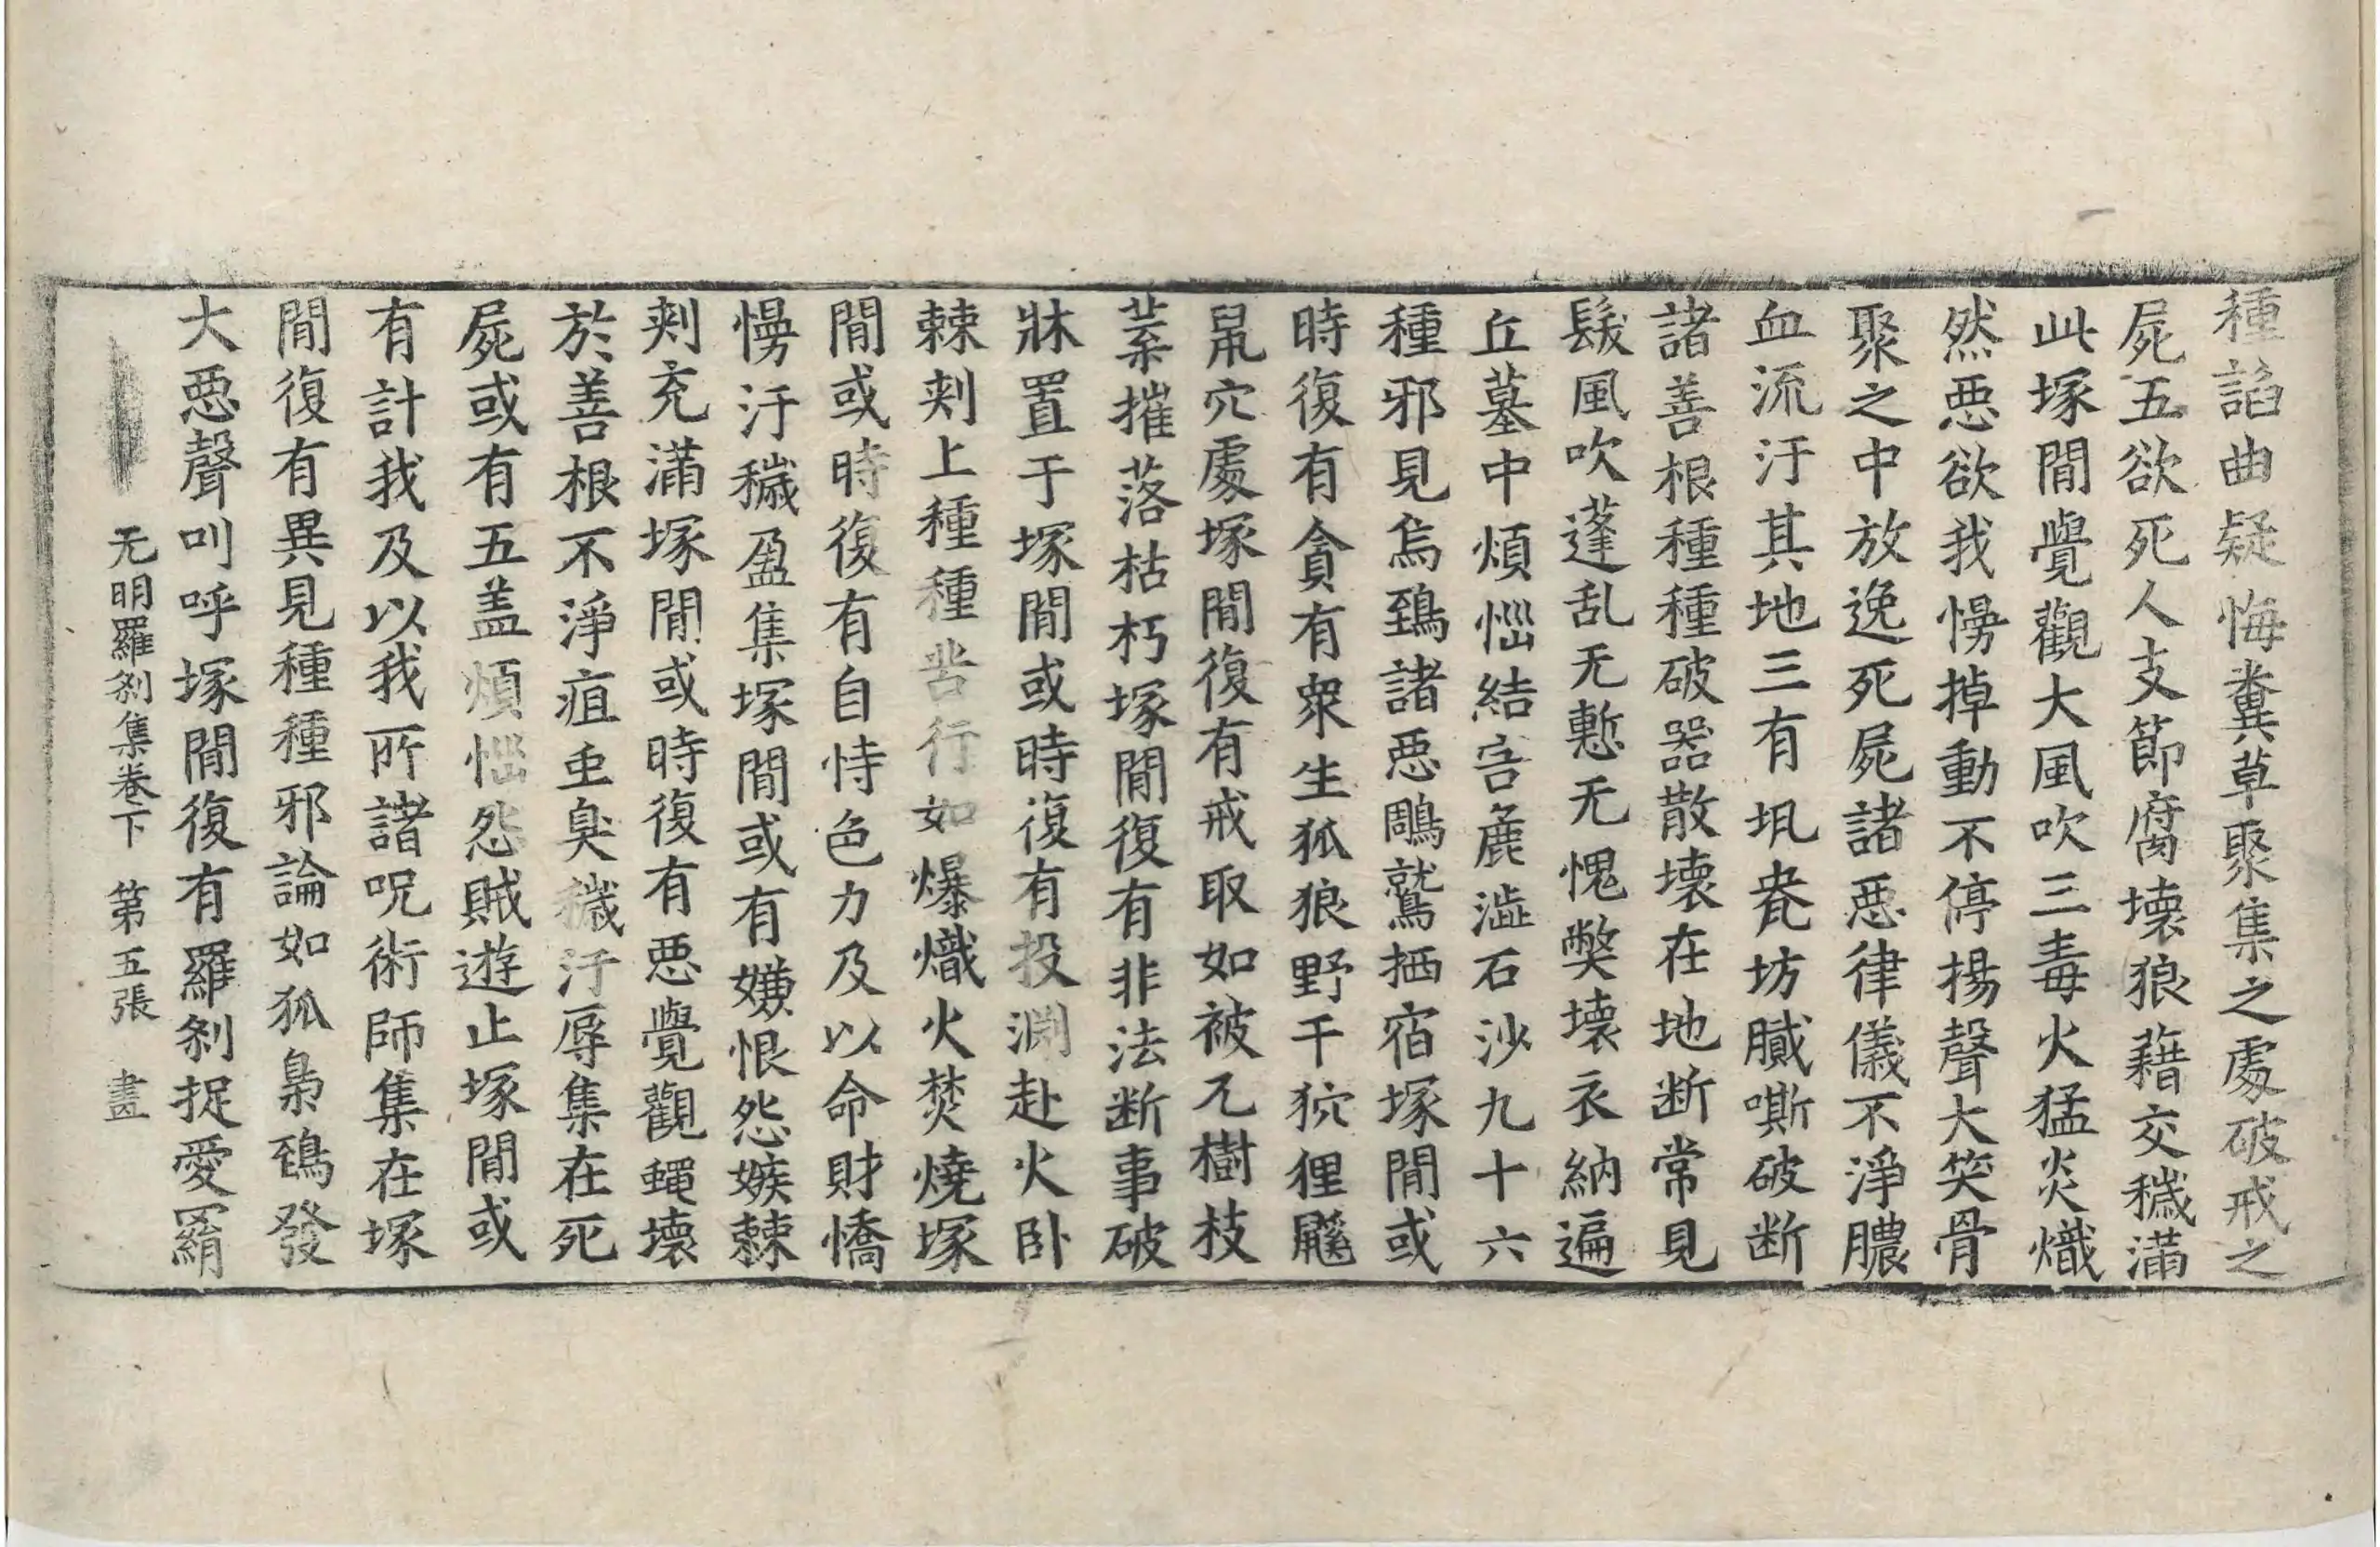 種諂曲疑悔糞草聚集之處破戒之
屍五欲死人支節腐壞狼藉交穢滿
此塚間覺觀大風吹三毒火猛炎熾
然惡欲我慢掉動不停揚聲大笑骨
聚之中放逸死屍諸惡律儀不淨膿
血流汙其地三有坑坊膩嘶破断
諸善根種種破器散壞在地断常見
髮風吹蓬乱无慙无愧弊壞衣納遍
丘墓中煩惱結害麁澁石沙九十六
種邪見烏鵄諸惡鵰鷲栖宿塚間或
時復有貪有衆生狐狼野干狖狸鼷
鼠穴處塚間復有戒取如被兀樹枝
葉摧落枯朽塚間復有非法断事破
牀置于塚間或時復有投渊赴火卧
棘刾上種種苦行如爆熾火焚燒塚
間或時復有自恃色力及以命財憍
慢汙穢盈集塚間或有嫌恨怨嫉棘
刾充滿塚間或時復有惡覺觀蠅壞
於善根不淨疽虫臭穢汙辱集在死
屍或有五盖煩惱怨賊遊止塚間或
有計我及以我所諸呪術師集在塚
間復有異見種種邪論如狐梟鵄發
大惡聲叫呼塚間復有羅刹捉愛羂
无明羅刹集卷下 第五張 畫